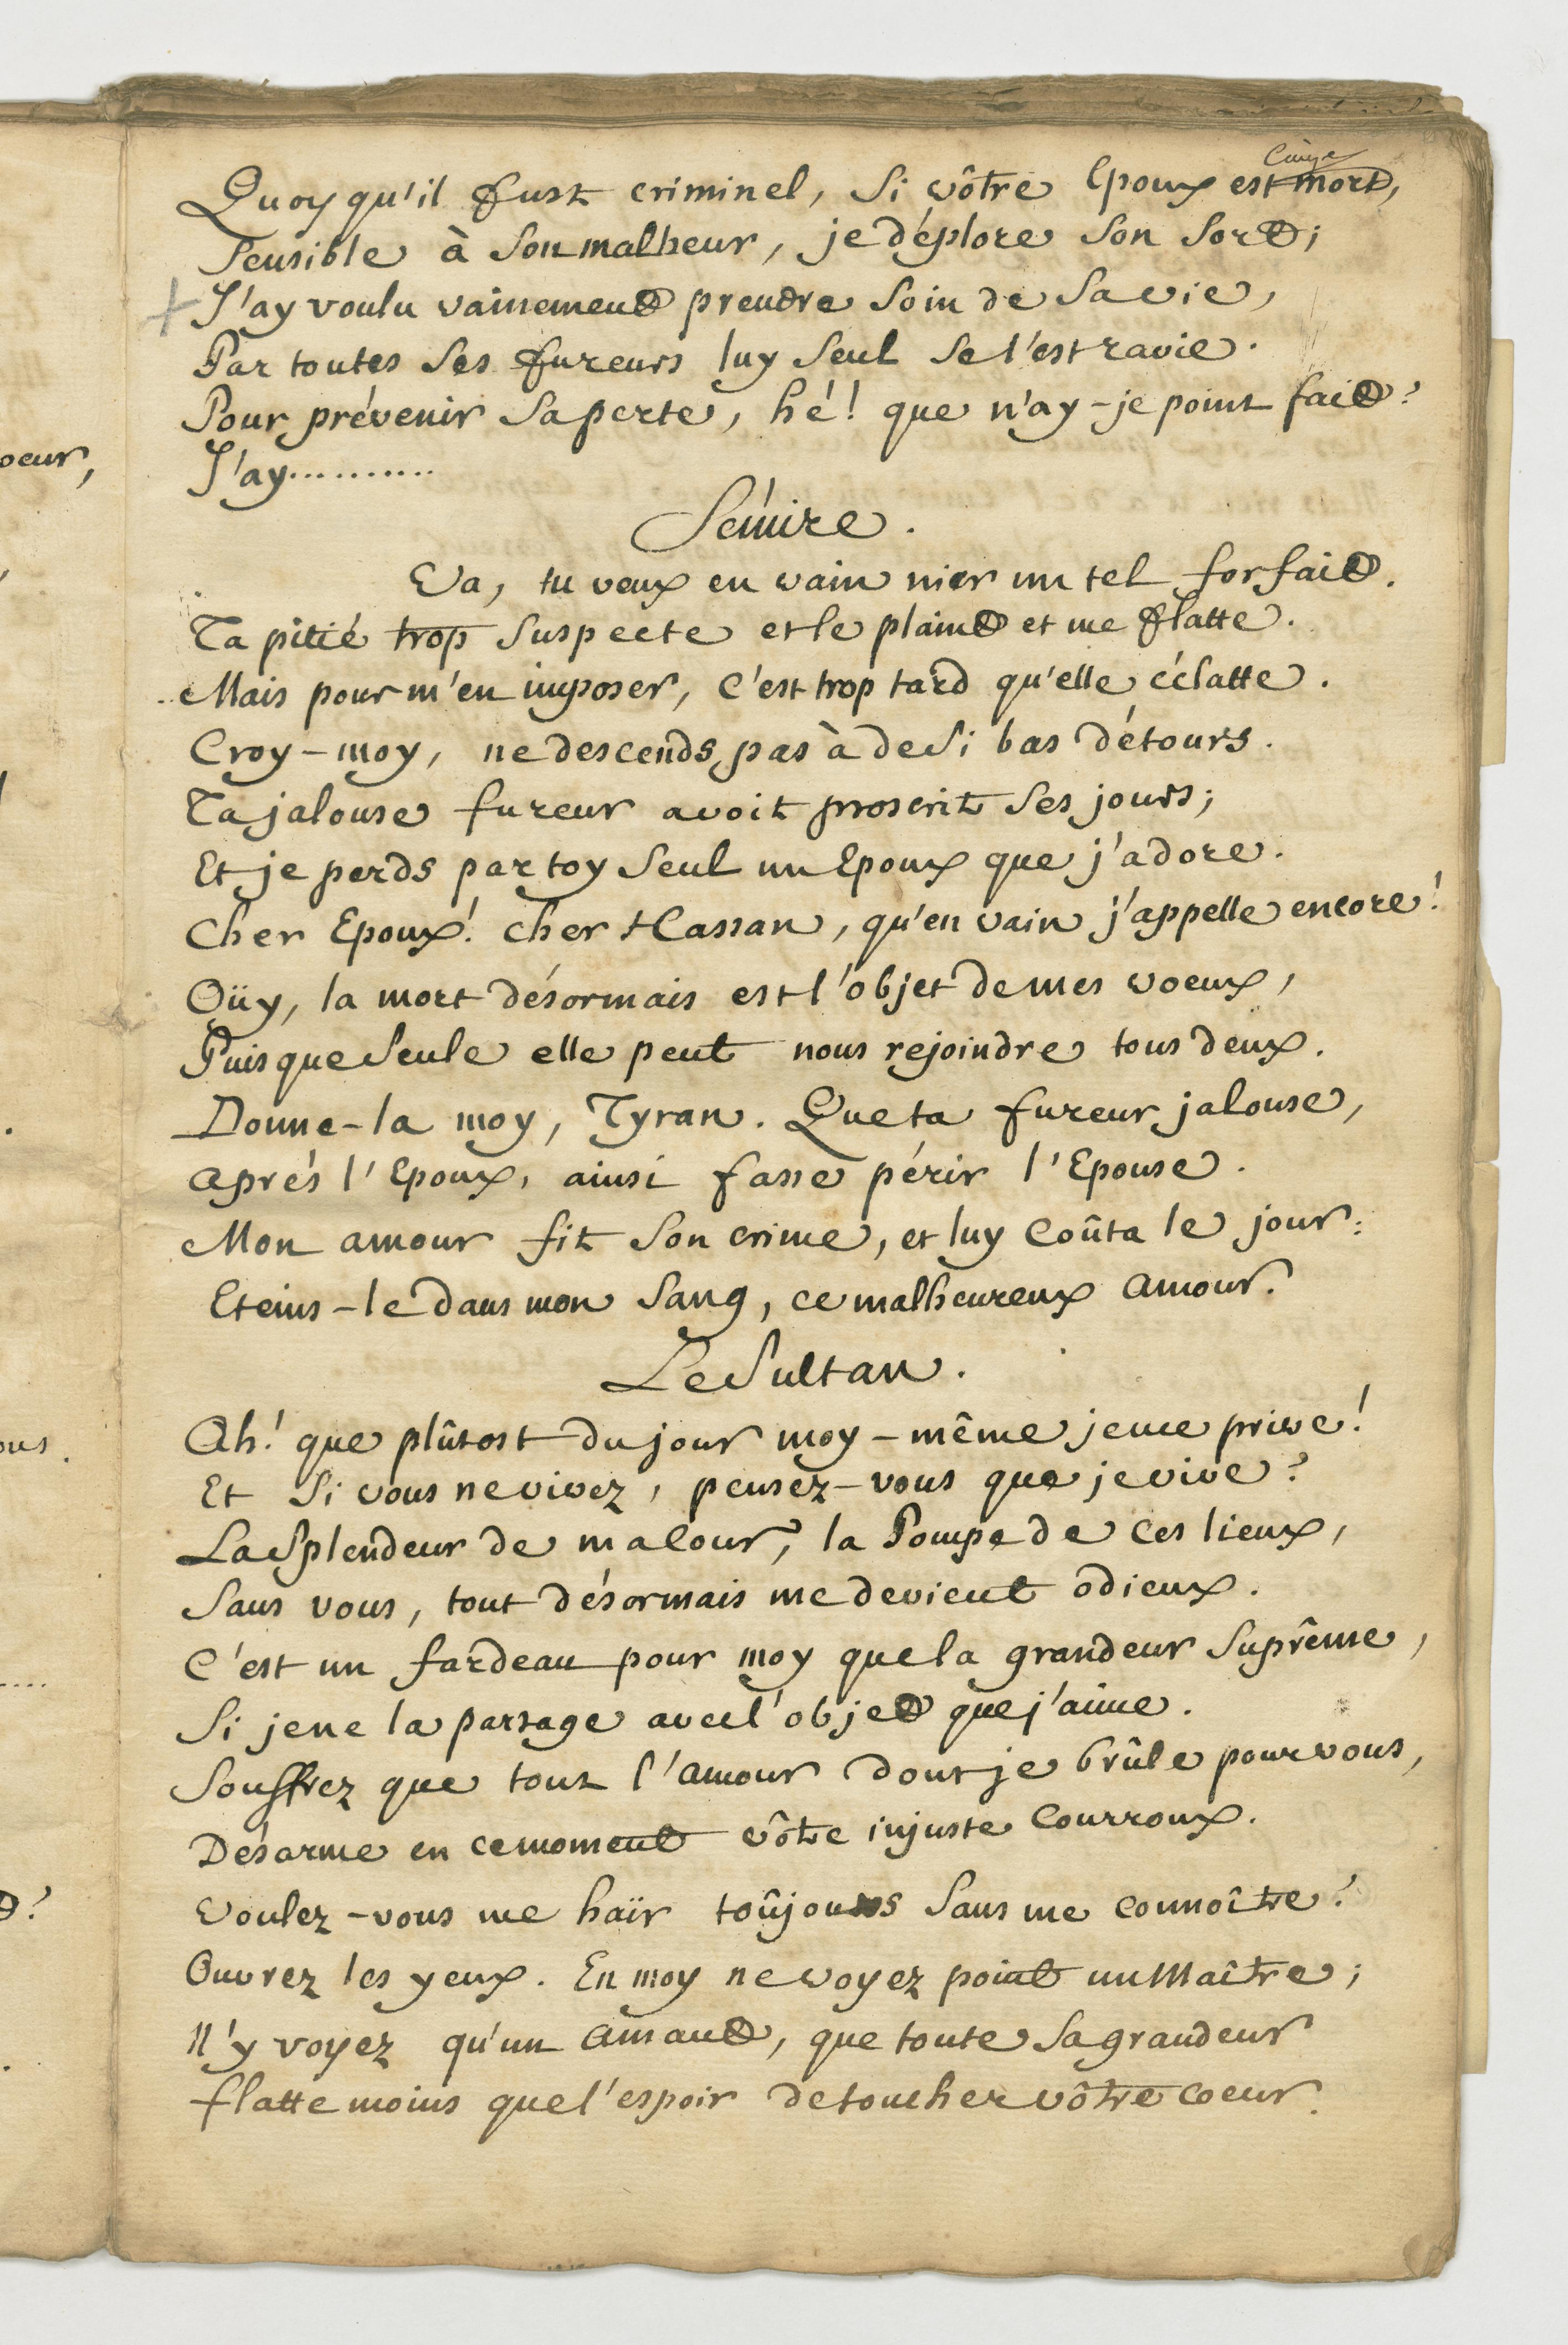 Quoy qu'il fust criminel, si vôtre Epoux est mort,
Sensible à son malheur, je déplore son sort;
J'ay voulu vainement prendre soin de sa vie,
Par toutes ses fureurs luy seul se l'est ravie.
Pour prévenir sa perte, hé! que n'ay-je point fait?
J'ay...........
Sémire.
Va, tu veux en vain nier un tel forfait.
Ta pitié trop suspecte et le plaint et me flatte.
Mais pour m'en imposer, c'est trop tard qu'elle éclatte.
Croy-moy, ne descends pas à de si bas détours.
Ta jalouse fureur avoit proscrit ses jours;
Et je perds par toy seul un Epoux que j'adore.
Cher Epoux! cher Hassan, qu'en vain j'appelle encore!
Oüy, la mort désormais est l'objet de mes voeux,
Puisque seule elle peut nous rejoindre tous deux.
Donne-la moy, Tyran. Que ta fureur jalouse,
Aprés l'Epoux, ainsi fasse périr l'Epouse.
Mon amour fit son crime, et luy coûta le jour:
Eteins-le dans mon sang, ce malheureux amour.
Le Sultan.
Ah! que plûtost du jour moy-même je me prive!
Et si vous ne vivez, pensez-vous que je vive?
La splendeur de ma Cour, la Pompe de ces lieux,
Sans vous, tout désormais me devient odieux.
C'est un fardeau pour moy que la grandeur suprême,
Si je ne la partage avec l'objet que j'aime.
Souffrez que tout l'amour dont je brûle pour vous,
Désarme en ce moment vôtre injuste courroux.
Voulez-vous me haïr toûjours sans me connoître?
Ouvrez les yeux. En moy ne voyez point un Maître;
N'y voyez qu'un Amant, que toute sa grandeur
flatte moins que l'espoir de toucher vôtre coeur.